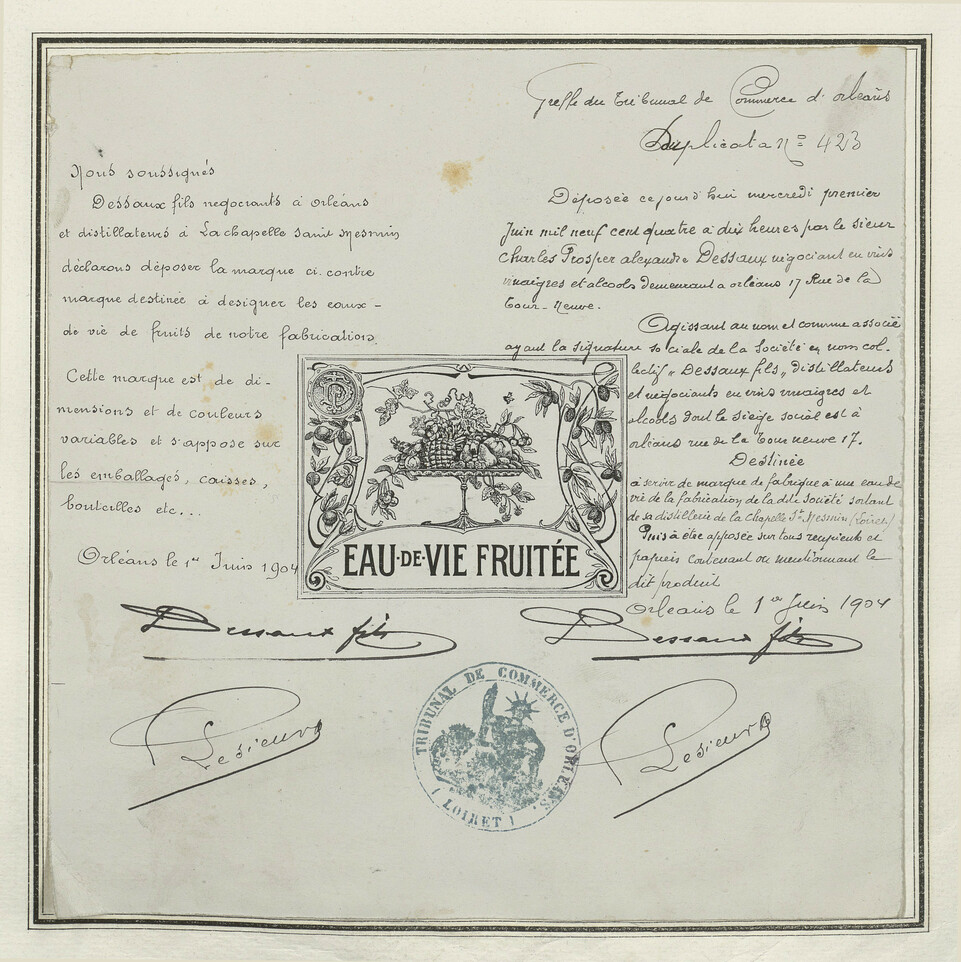 Nous soussignés
Dessaux fils negociants à Orléans
et distillateurs à Lachapelle saint Mesmin
déclarons déposer la marque ci. contre
marque destinée à designer les eaux-
de vie de fruits de notre fabrication.
Cette marque est de di-
mensions et de couleurs
variables et s'appose sur
les emballages, caisses,
bouteilles etc...
Orléans le 1er Juin 1904
Dessaux fils
Lesieur
Greffe du Tribunal de Commerce d'Orléans
Duplicata No 423
Déposée ce jourd'hui mercredi premier
Juin mil neuf cent quatre à dix heures par le sieur
Charles Prosper alexandre Dessaux négociant en vins
vinaigres et alcools demeurant a orléans 17 Rue de la
Tour-Neuve.
Agissant au nom et comme associé
ayant la signature sociale de la Société en nom col-
lectif, Dessaux fils, distillateurs
et négociants en vins vinaigres et
alcools dont le siège social est à
orléans rue de la Tour neuve 17.
Destinée
à servir de marque de fabrique à une eau de
vie de la fabrication de la dite Société sortant
de sa distillerie de la Chapelle St Mesmin (Loiret)
Puis à être apposée sur tous recipients et
papiers contenant ou mentionnant le
dit produit
Orléans le 1er Juin 1904
Dessaux fils
Lesieur
EAU-DE-VIE FRUITÉE
TRIBUNAL DE COMMERCE D'ORLÉANS.
(LOIRET)